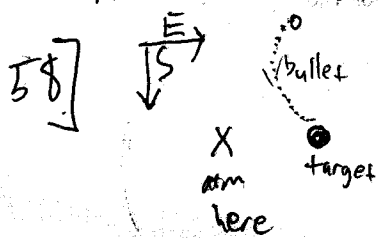 58]
E
S
O
bullet
X
target
aim
here